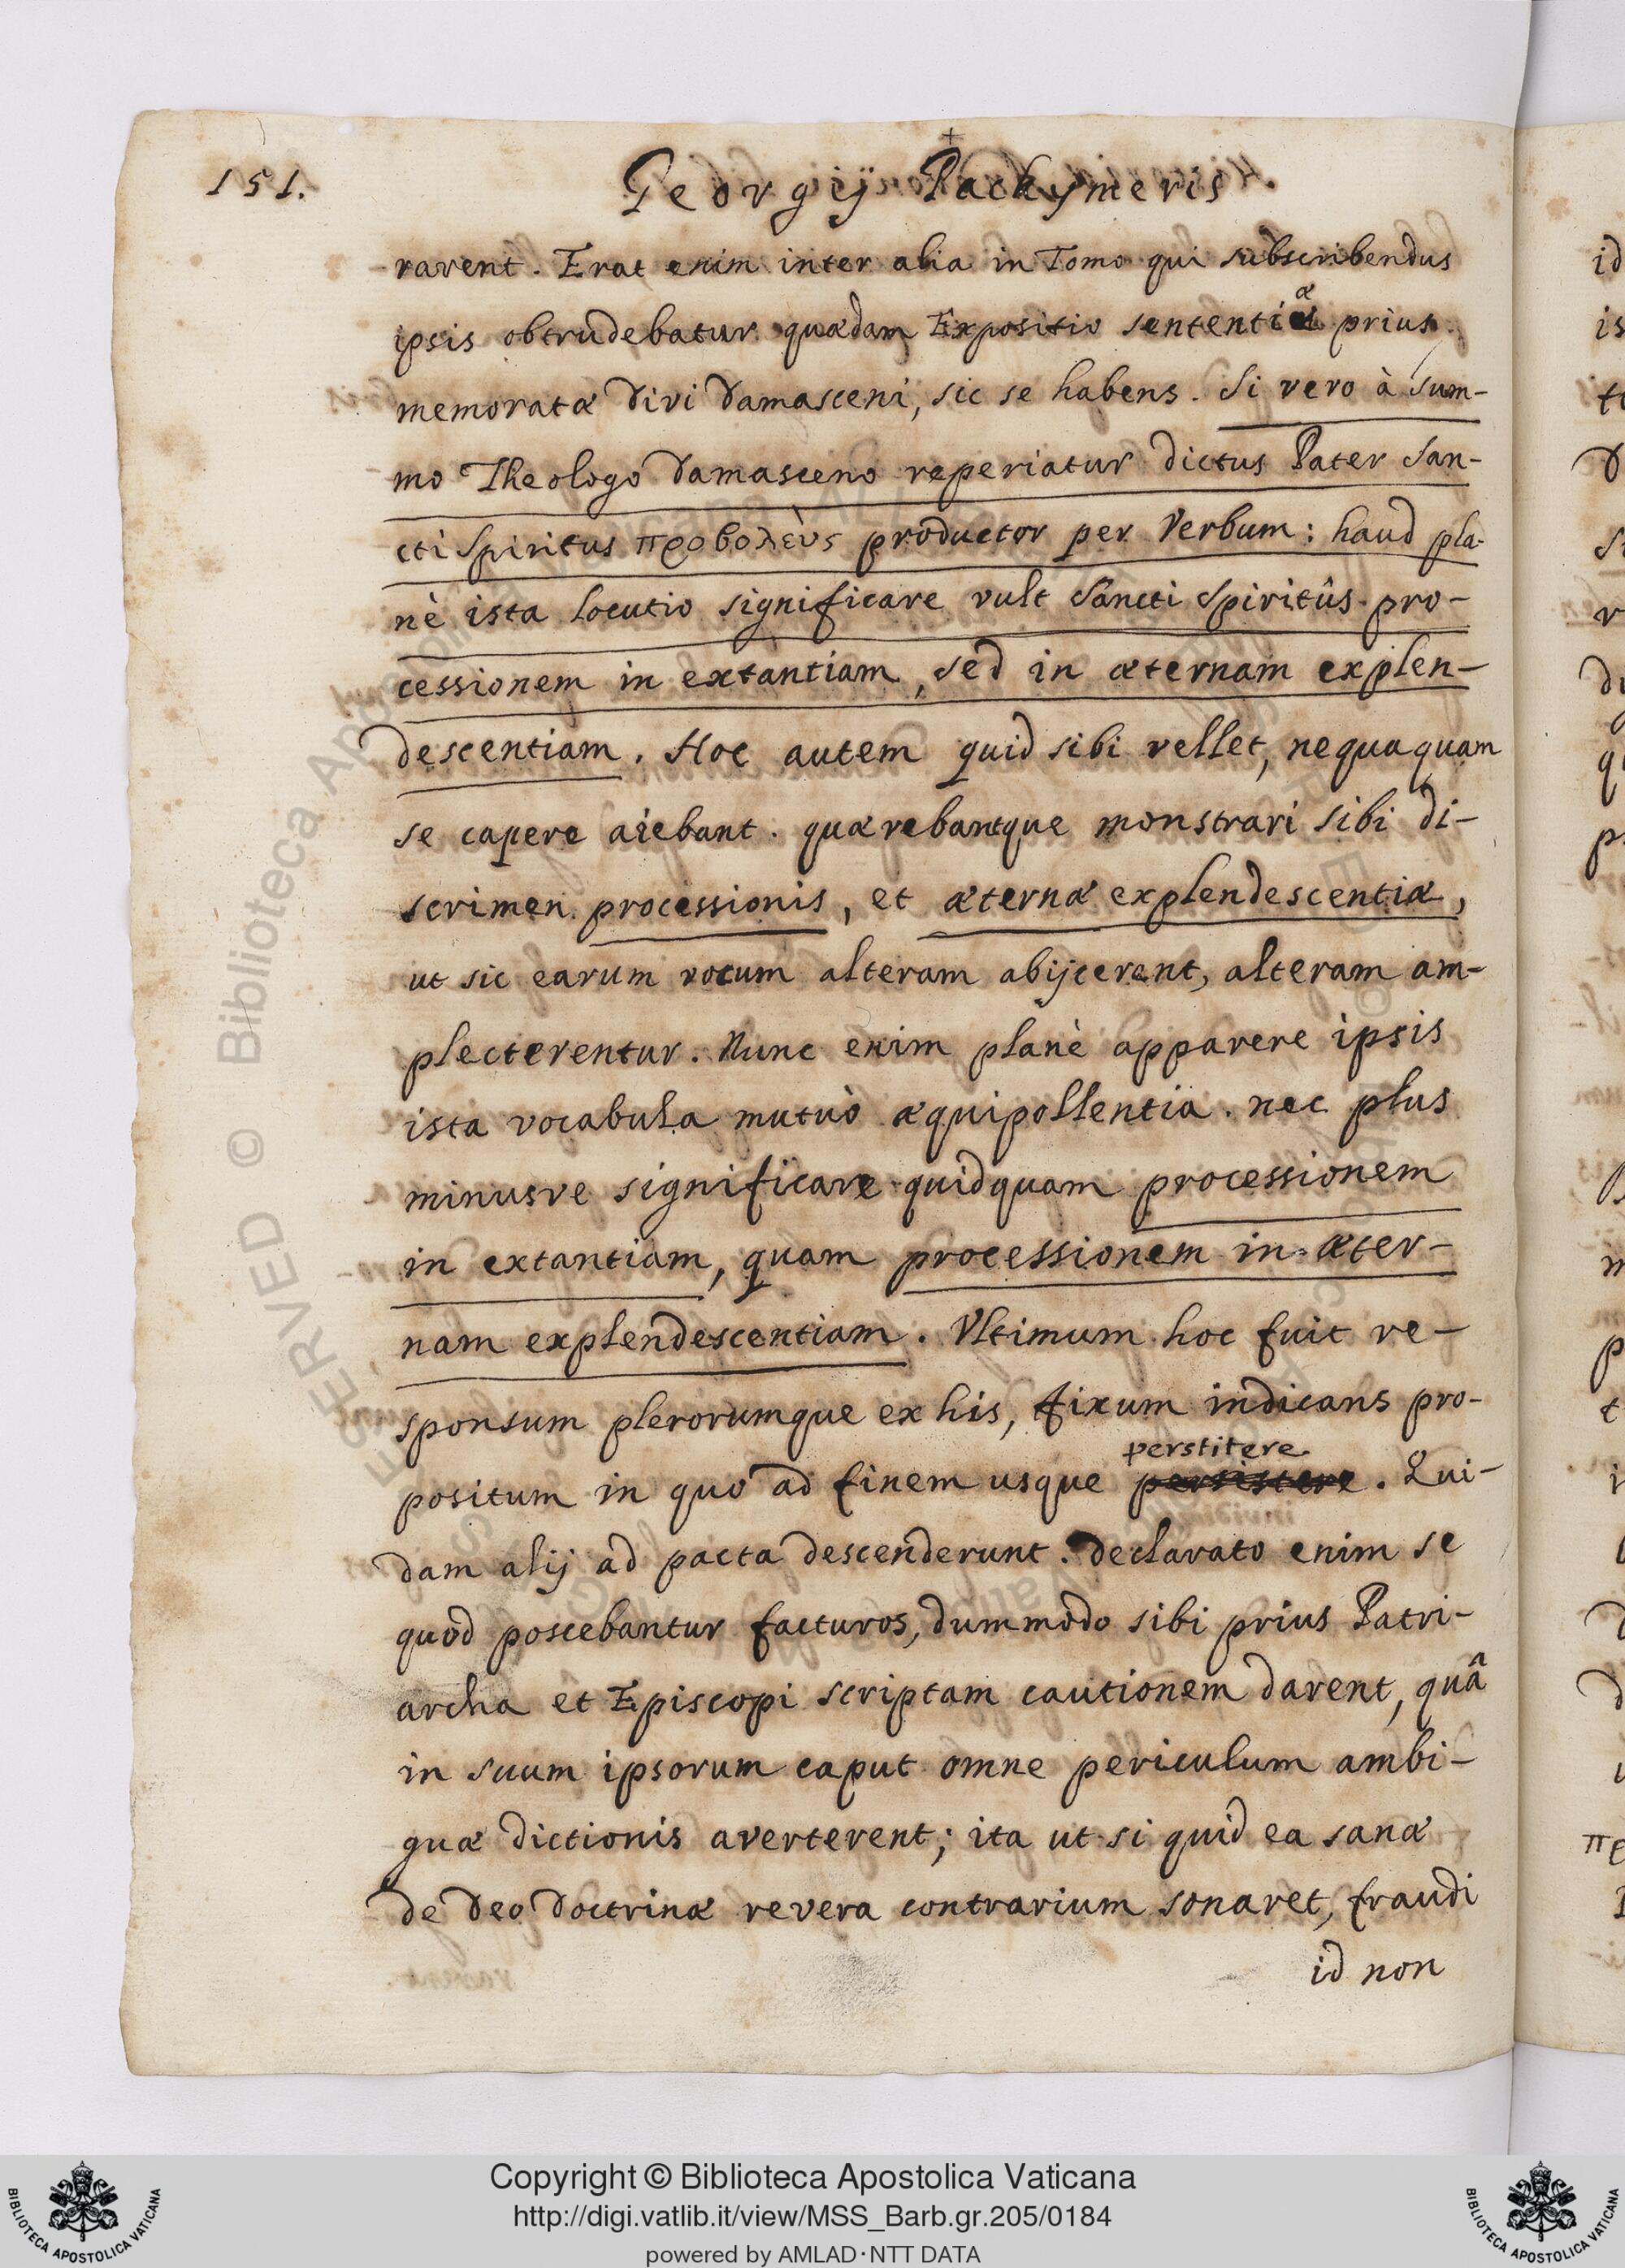 151.
Georgij Pachymeris
rarent. Erat enim inter alia in Tomo qui subscribendus
ipsis obtrudebatur quædam Expositio sententiæ prius
memoratæ Divi Damasceni, sic se habens. Si vero à sum-
mo Theologo Damasceno reperiatur dictus Pater San-
cti Spiritus προβολεὺς productor per Verbum: haud pla-
nè ista locutio significare vult Sancti Spiritûs pro-
cessionem in extantiam, sed in æternam explen-
descentiam. Hoc autem quid sibi vellet, nequaquam
se capere aiebant. quærebantque monstrari sibi di-
scrimen processionis, et æternæ explendescentiæ,
ut sic earum vocum alteram abijcerent, alteram am-
plecterentur. Nunc enim planè apparere ipsis
ista vocabula mutuò æquipollentia. nec plus
minusve significare quidquam processionem
in extantiam, quam processionem in æter-
nam explendescentiam. Vltimum hoc fuit re-
sponsum plerorumque ex his, fixum indicans pro-
perstitere
positum in quo ad finem usque persistere. Qui-
dam alij ad pacta descenderunt. Declarato enim se
quod poscebantur facturos, dummodo sibi prius Patri-
archa et Episcopi scriptam cautionem darent, quâ
in suum ipsorum caput omne periculum ambi-
guæ dictionis averterent; ita ut si quid ea sanæ
de Deo doctrinæ revera contrarium sonaret, fraudi
id non
Copyright © Biblioteca Apostolica Vaticana
http://digi.vatlib.it/view/MSS_Barb.gr.205/0184
powered by AMLAD·NTT DATA
BIBLIOTECA APOSTOLICA VATICANA
BIBLIOTECA APOSTOLICA VATICANA